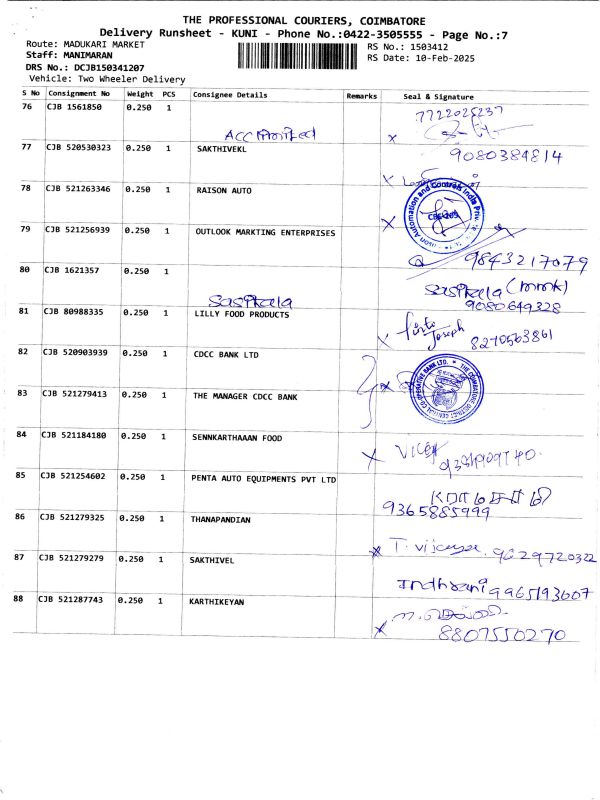 THE PROFESSIONAL COURIERS, COIMBATORE
Delivery Runsheet - KUNI - Phone No.:0422-3505555 - Page No.:7
Route: MADUKARI MARKET
RS No.: 1503412
Staff: MANIMARAN
RS Date: 10-Feb-2025
DRS No.: DCJB150341207
Vehicle: Two Wheeler Delivery
S No Consignment No Weight PCS Consignee Details Remarks Seal & Signature
76 CJB 1561850 0.250 1 7722025237
77 CJB 520530323 0.250 1 SAKTHIVEKL 9080384814
78 CJB 521263346 0.250 1 RAISON AUTO
79 CJB 521256939 0.250 1 OUTLOOK MARKTING ENTERPRISES
9843217079
80 CJB 1621357 0.250 1
9080649328
81 CJB 80988335 0.250 1 LILLY FOOD PRODUCTS
Joseph 8270563861
82 CJB 520903939 0.250 1 CDCC BANK LTD
83 CJB 521279413 0.250 1 THE MANAGER CDCC BANK
84 CJB 521184180 0.250 1 SENNKARTHAAAN FOOD
85 CJB 521254602 0.250 1 PENTA AUTO EQUIPMENTS PVT LTD
9365885999
86 CJB 521279325 0.250 1 THANAPANDIAN
9629720322
87 CJB 521279279 0.250 1 SAKTHIVEL
Indhrani 9965193607
88 CJB 521287743 0.250 1 KARTHIKEYAN
8807550270